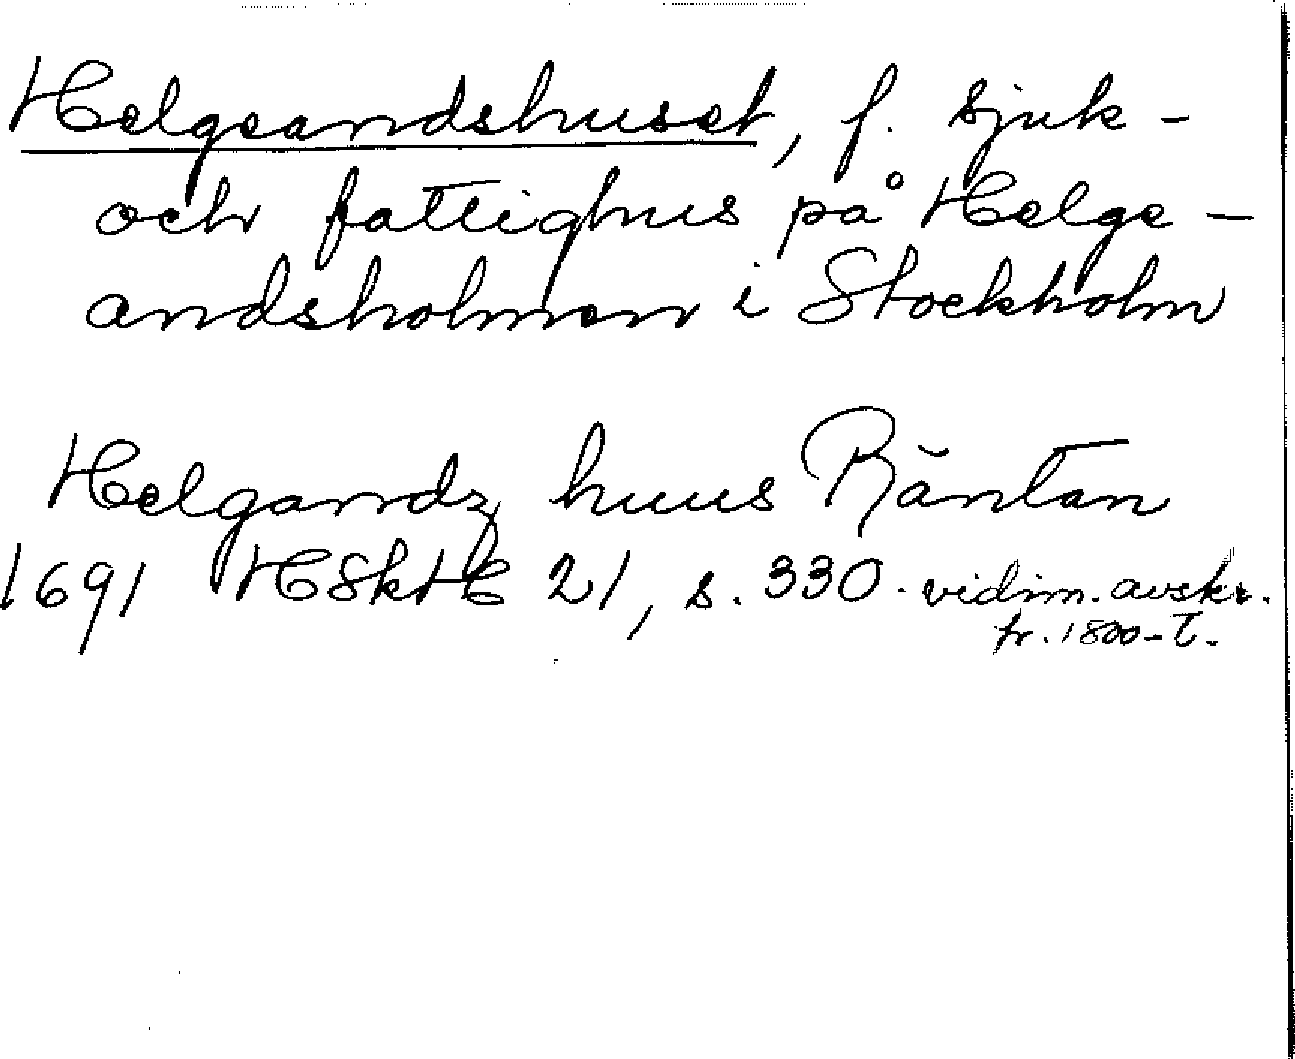 Helgeandshuset, f. sjuk-
och fattighus på Helge-
andsholmen i Stockholm
Helgandz huus Räntan
1691 HSktH 21, s. 330. vidim. avskr.
fr. 1800-t.